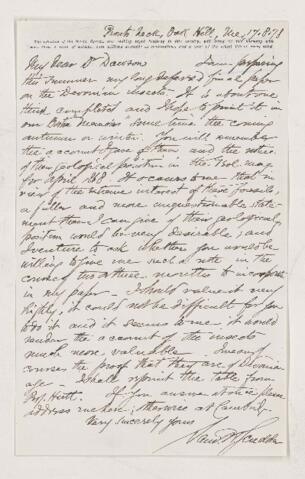 My Dear Dr Dawson I am preparing
this summer my long deferred final paper
on the Devonian insects. It is about one
third completed and I hope to print it in
our Memoirs some time the coming
autumn or winter. You will remember
the account I gave of them and the notice
of their geological position in the Geol. mag
for April 1868. It occurs to me that in
view of the intense interest of these fossils
a fuller and more unquestionable state-
ment than I can give of their geological
position would be very desirable; and
I venture to ask whether you would be
willing to give me such a note in the
course of two or three months to incorporate
in my paper. I should value it very
highly, it could not be difficult for you
to do it and it seems to me it would
render the account of the insects
much more valuable. I mean of
course the proof that they are of Devonian
age. I shall reprint the table from
Prof. Hartt. If you answer at once please
address me here; otherwise at Cambridge
Very sincerely yours
Samuel H. Scudder